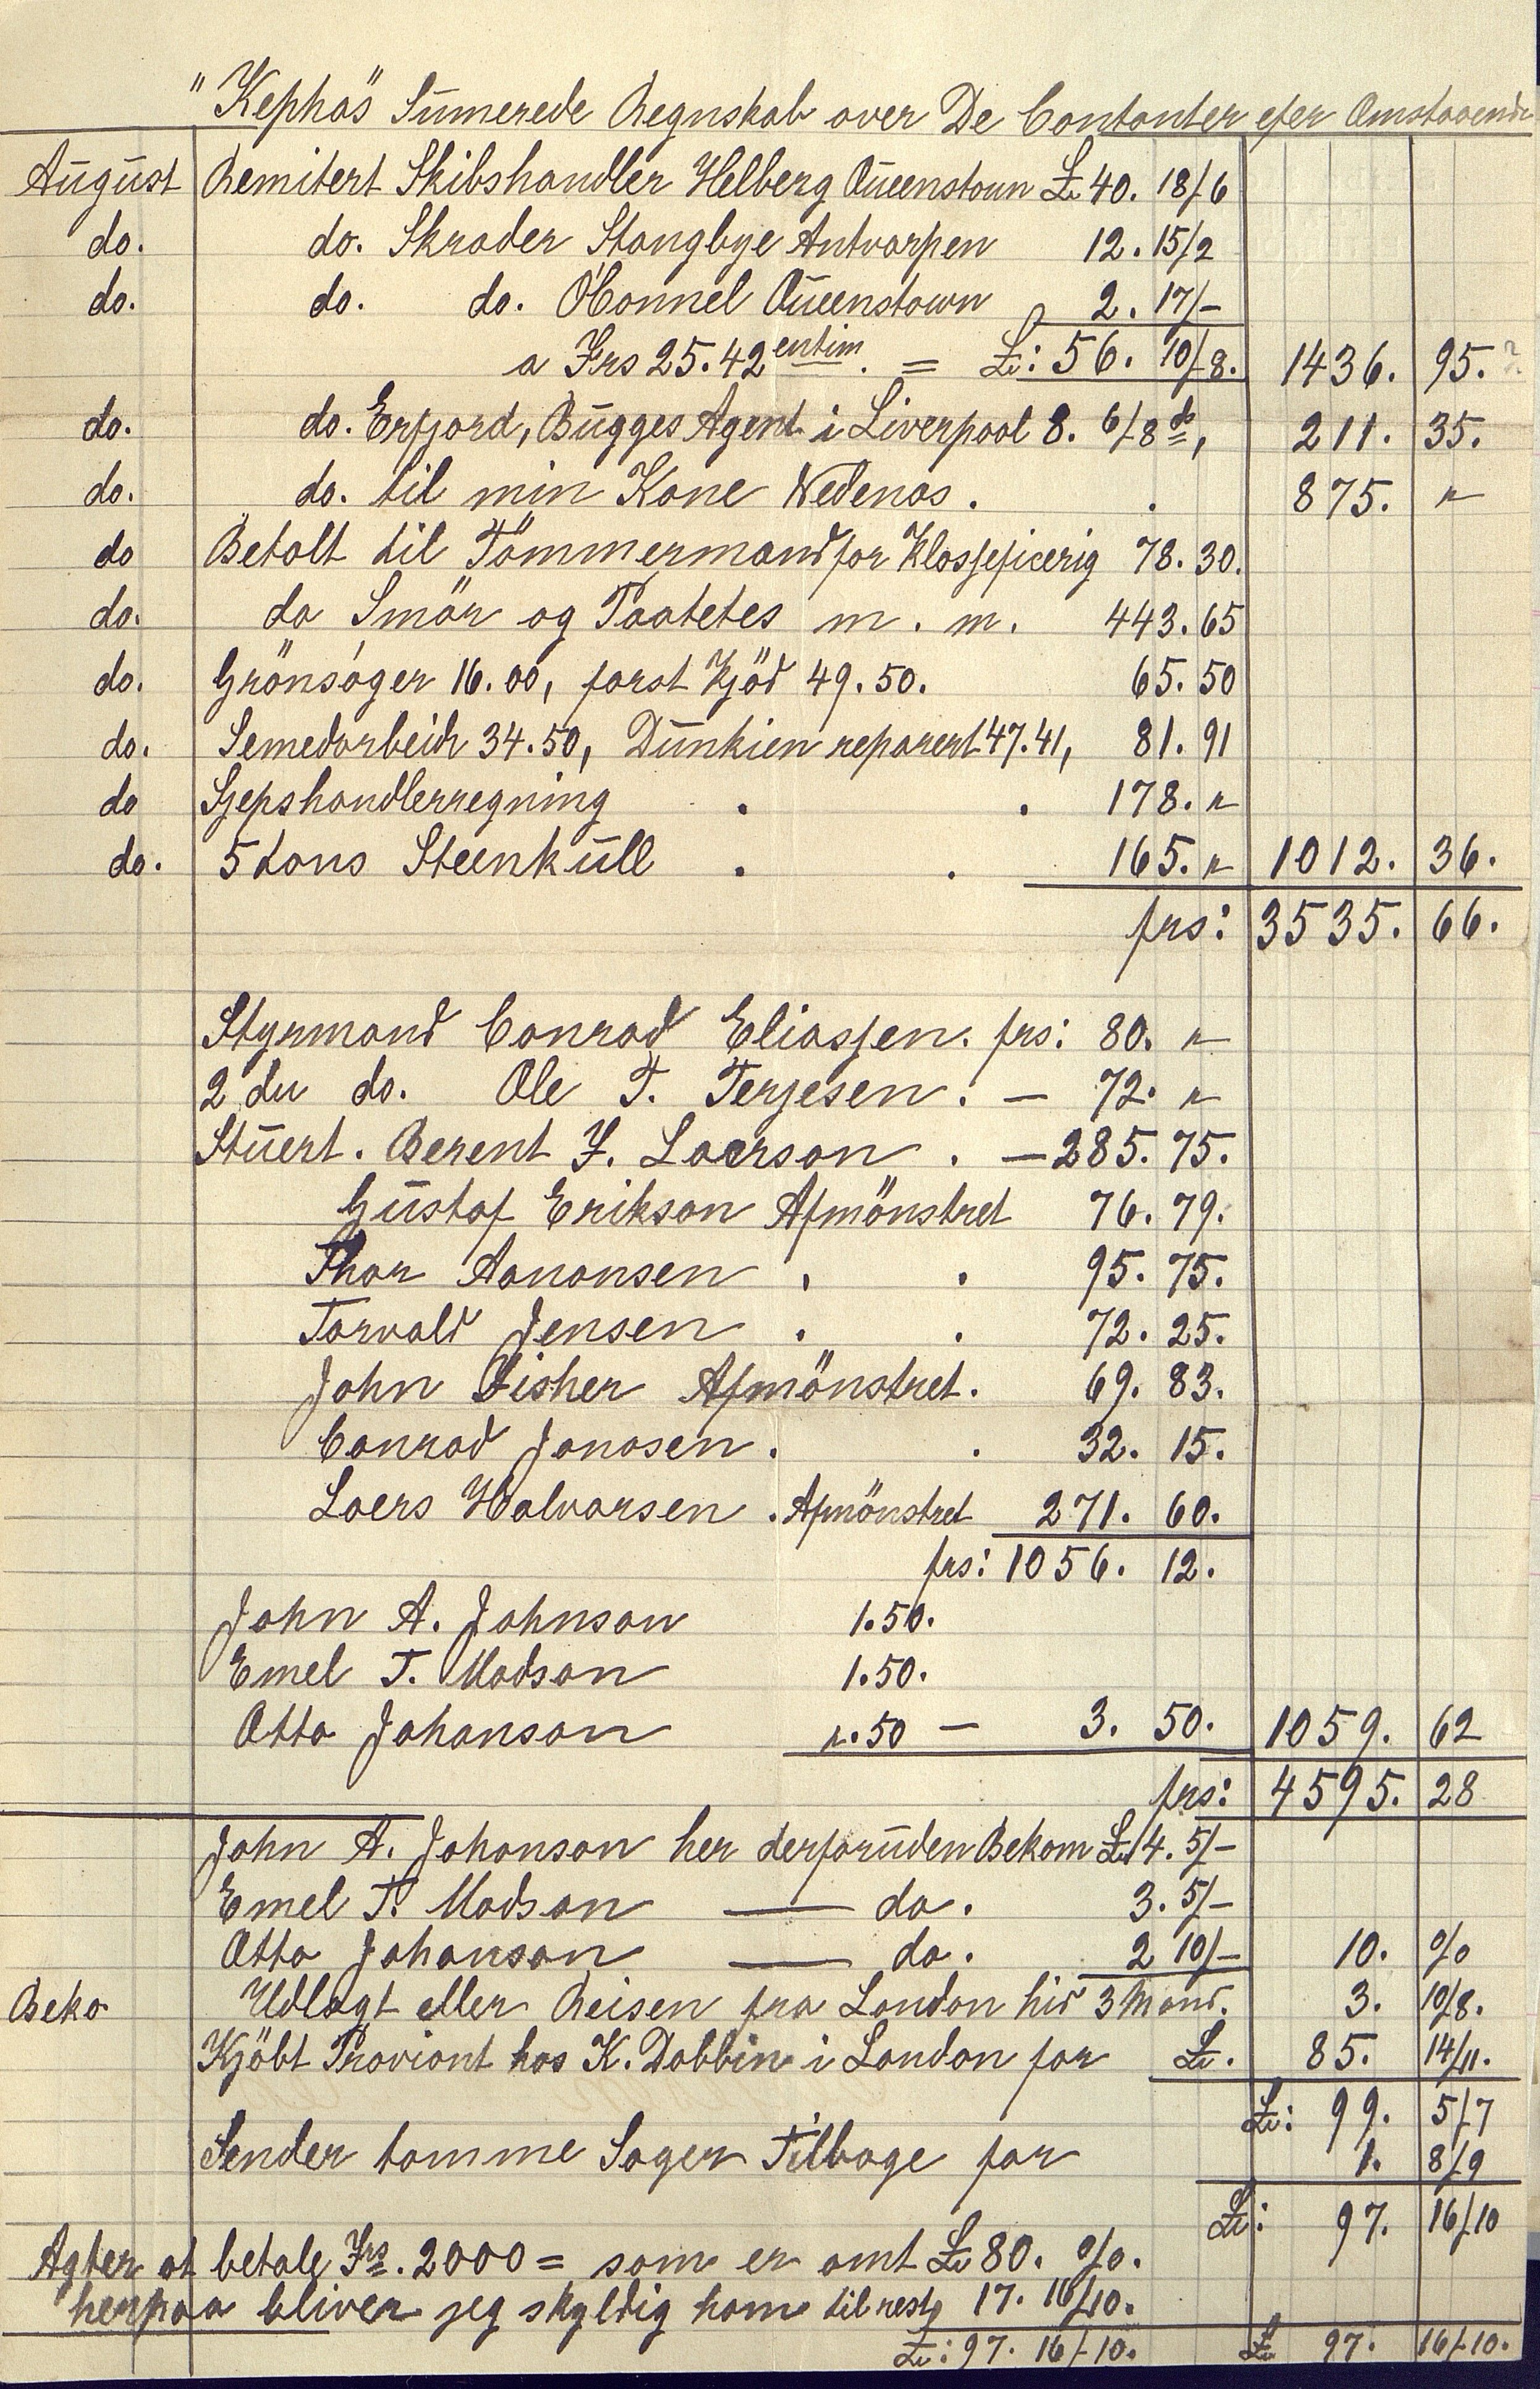 "Kephas" Sūmerede Regnskab over De Contanter efter Omstaaende
August Remitert Skibshandler Helberg Qūeenstoun £ 40. 18/6
do. do. Skrader Stangbye Antvarpen 12. 15/2
do. do. do. O'Connel Qūeenstown 2. 17/-
a Frs 25.42 entim. = £: 56. 10/8. 1436. 95. ?
do. do. Erfjord, Būgges Agent i Liverpool 8. 6/8 d, 211. 35.
do. do. til min Kone Nedenas. . 875. "
do Betalt til Tömmermand for Klasseficerig 78. 30.
do. do Smör og Paatetes m. m. 443. 65
do. Grönsager 16.00, farst Kjöd 49.50. 65. 50
do. Semedarbeidr 34.50, Dūnkien reparert 47.41, 81. 91
do Sjepshandlerregning . . 178. "
do. 5 tons Steenkūll . . 165. " 1012. 36.
frs: 3535. 66.
Styrmand Conrad Eliassen. frs: 80. "
2 du do. Ole T. Terjesen. — 72. "
Stūert. Berent F. Laerson . — 285. 75.
Gūstaf Erikson Afmönstret 76. 79.
Thor Aanonsen . . 95. 75.
Torvald Jensen . . 72. 25.
John Fisher Afmönstret. 69. 83.
Conrad Jonasen. . 32. 15.
Laers Halvorsen . Afmönstret 271. 60.
frs: 1056. 12.
John A. Johnson 1.50.
Emel T. Madson 1.50.
Otto Johanson ".50 — 3. 50. 1059. 62
frs: 4595. 28
John A. Johanson her derforūden Bekom £ 4. 5/-
Emel T. Madson — do. 3. 5/-
Otto Johanson — do. 2 10/- 10. 0/0
Beko Udlagt eller Reisen fra London hid 3 Mand. 3. 10/8.
Kjöbt Proviant hos K. Dobbin i London for £. 85. 14/11.
£: 99. 5/7
Sender tomme Sager Tilbage for 1. 8/9
£: 97. 16/10
Agter at betale Frs. 2000 = som er omt £ 80. 0/0.
herpaa bliver jeg skyldig ham til rest 17. 16/10.
£: 97. 16/10. £ 97. 16/10.